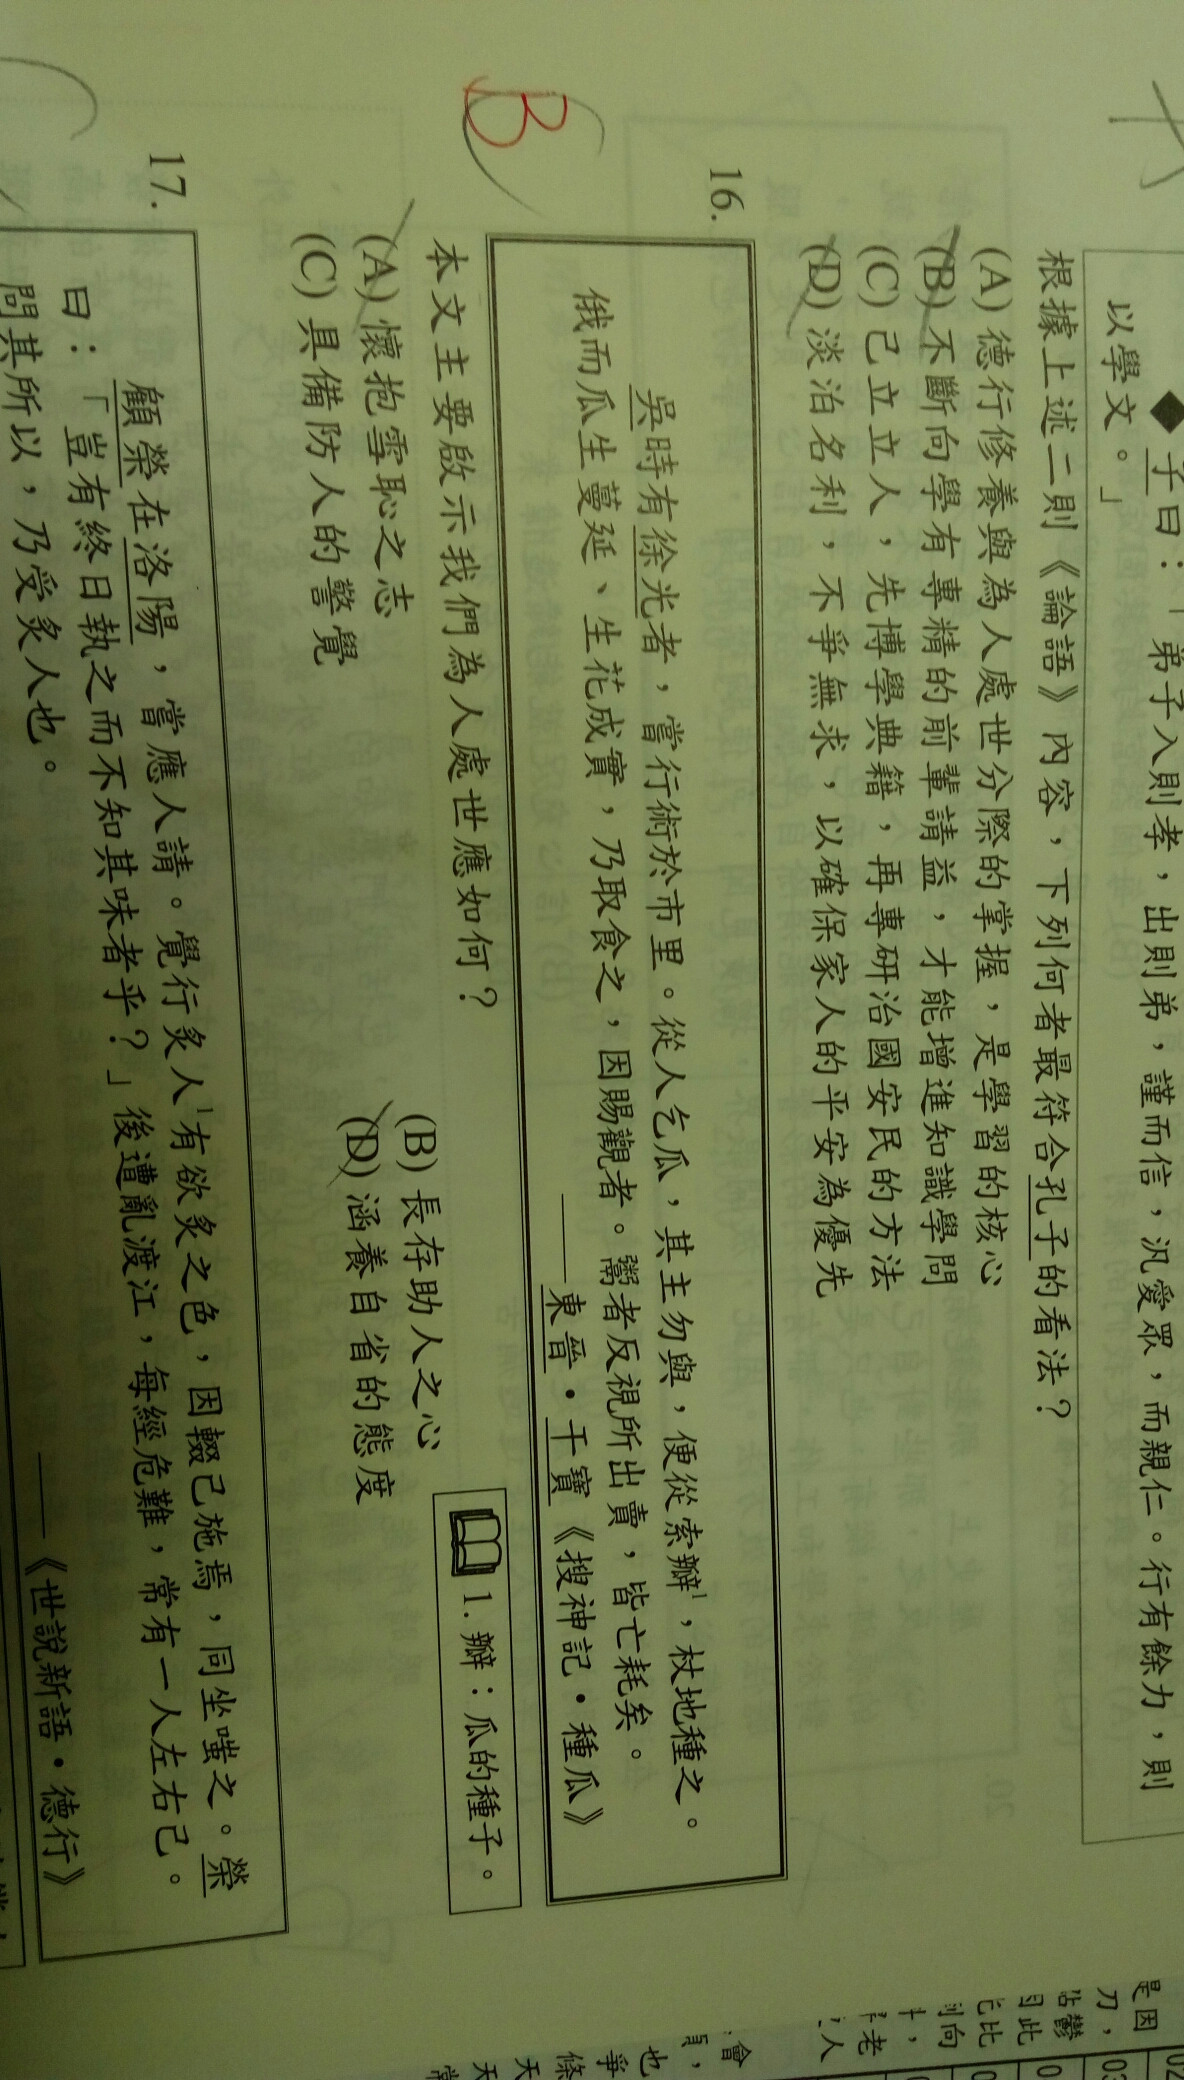 ◆子曰：「弟子入則孝，出則弟，謹而信，汎愛眾，而親仁。行有餘力，則
以學文。」
根據上述二則《論語》內容，下列何者最符合孔子的看法？
(A) 德行修養與為人處世分際的掌握，是學習的核心
(B) 不斷向學有專精的前輩請益，才能增進知識學問
(C) 己立立人，先博學典籍，再專研治國安民的方法
(D) 淡泊名利，不爭無求，以確保家人的平安為優先
16.
吳時有徐光者，嘗行術於市里。從人乞瓜，其主勿與，便從索瓣1，杖地種之。
俄而瓜生蔓延、生花成實，乃取食之，因賜觀者。鬻者反視所出賣，皆亡耗矣。
——東晉·干寶《搜神記·種瓜》
B
本文主要啟示我們為人處世應如何？
1. 瓣：瓜的種子。
(A) 懷抱雪恥之志
(B) 長存助人之心
(C) 具備防人的警覺
(D) 涵養自省的態度
17.
顧榮在洛陽，嘗應人請。覺行炙人1有欲炙之色，因輟己施焉，同坐嗤之。榮
曰：「豈有終日執之而不知其味者乎？」後遭亂渡江，每經危難，常有一人左右己。
問其所以，乃受炙人也。
——《世說新語·德行》